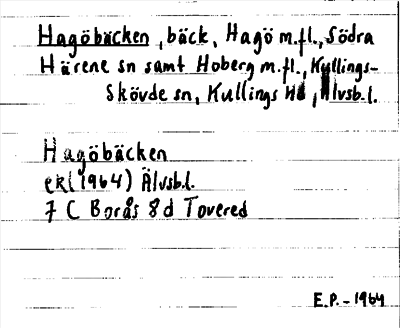 Hagöbäcken, bäck, Hagö m.fl., Södra
Härene sn samt Hoberg m.fl., Kullings-
Skövde sn, Kullings Hd, Älvsb.l.
Hagöbäcken
ekl (1964) Älvsb.l.
7 C Borås 8d Tovered
E.P. - 1964